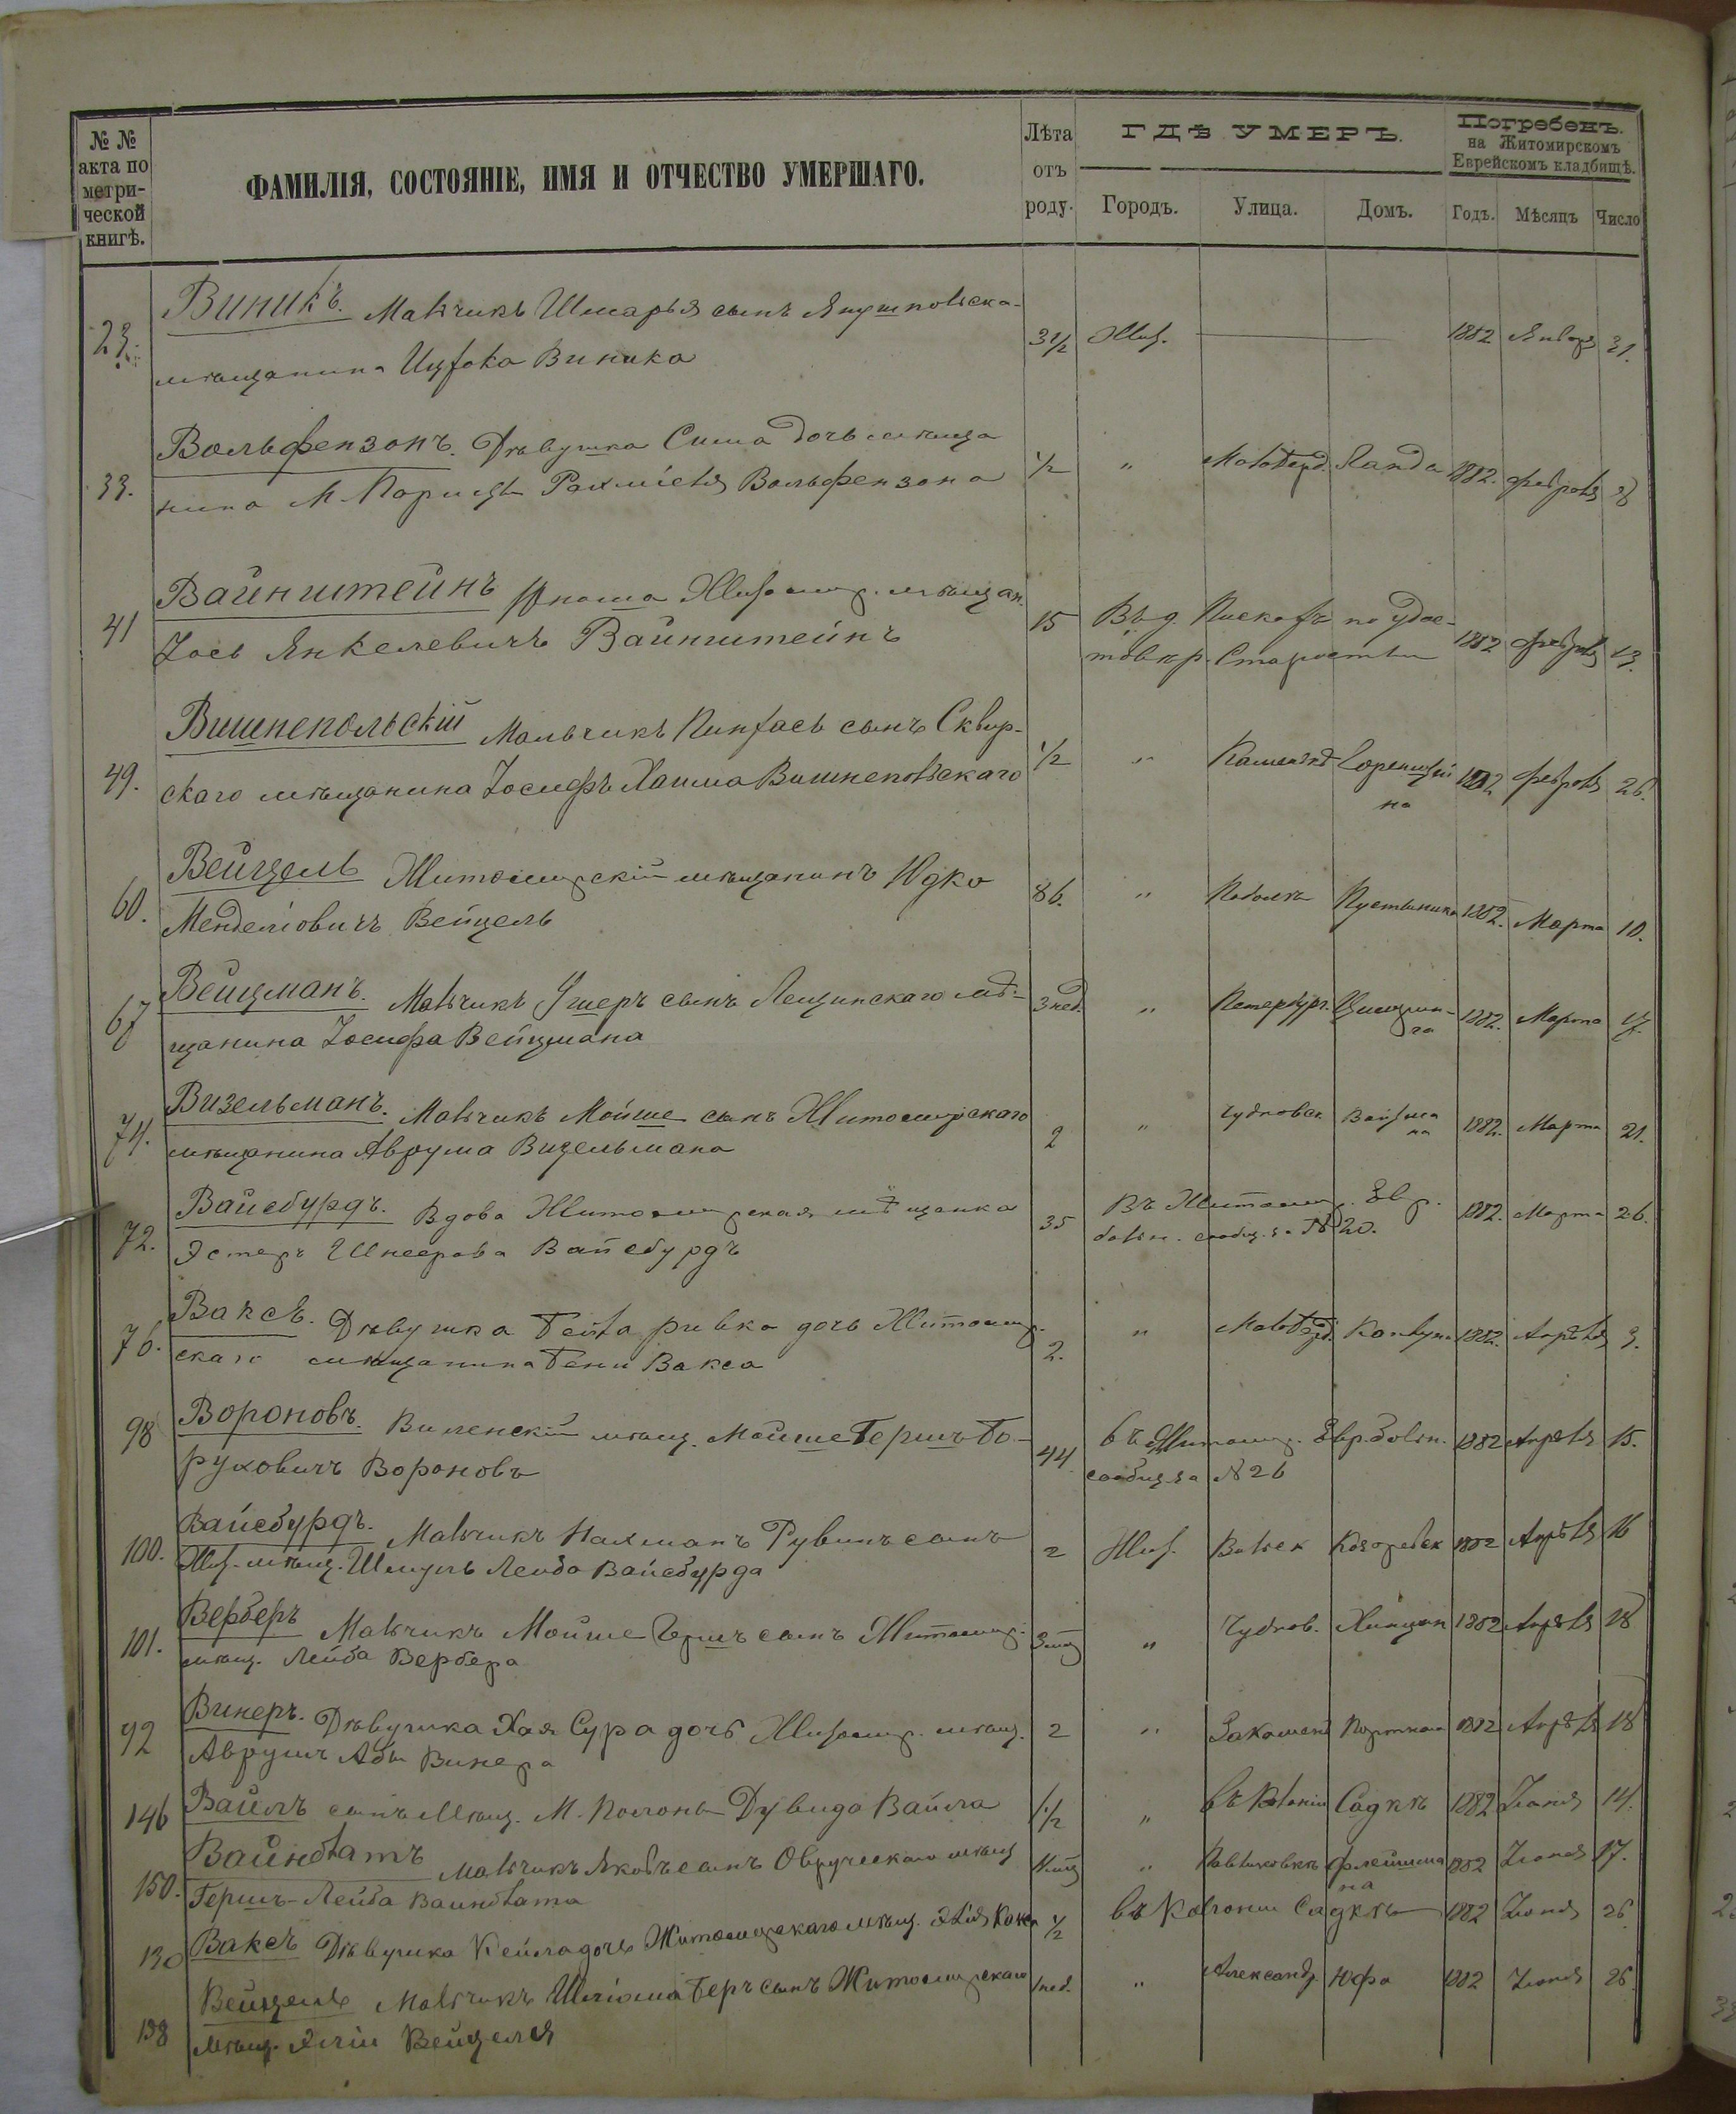 № №
акта по
метри-
ческой
книгѣ.
ФАМИЛІЯ, СОСТОЯНІЕ, ИМЯ И ОТЧЕСТВО УМЕРШАГО.
Лѣта
отъ
роду.
ГДѢ УМЕРЪ.
Городъ. Улица. Домъ.
Погребенъ.
на Житомирскомъ
Еврейскомъ кладбищѣ.
Годъ. Мѣсяцъ Число
23. Виникъ. Мальчикъ Шмарья сынъ Янушпольска-
мѣщанина Ицька Виника 3½ Жит. 1882 Января 31.
33. Вольфензонъ. Дѣвушка Сима дочь мѣща
нина М. Рахміеля Вольфензона ½ " Малоберд. Ланда 1882. Февраля 8
41 Вайнштейнъ Юноша Житомир. мѣщан.
Іось Янкелевичъ Вайнштейнъ 15 Въ д. по удос-
товѣр. Старосты 1882 Февраля 13.
49. Вишнепольскій Мальчикъ Пинхасъ сынъ Сквир-
скаго мѣщанина Іосифъ Хаима Вишнепольскаго ½ " 1882 Февраля 26.
60. Вейцель Житомирскій мѣщанинъ Юдко
Менделіовичъ Вейцель 86. " Подолъ Пустыника 1882. Марта 10.
67 Вейцманъ. Мальчикъ Ушеръ сынъ Лещинскаго мѣ-
щанина Іосифа Вейцмана 3 нед. " Петербург. 1882. Марта 17.
74. Визельманъ. Мальчикъ Мойше сынъ Житомирскаго
мѣщанина Аврума Визельмана 2 " Чудновск. Вайсма
на 1882. Марта 21.
72. Вайсбурдъ. Вдова Житомирская мѣщанка
Эстеръ Шнеерова Вайсбурдъ 35 Въ Житомир. Евр.
больн. сообщ. за № 20. 1882. Марта 26.
76. Ваксъ. Дѣвушка Бейла ривка дочь Житомир.
скаго мѣщанина Бени Вакса 2. " Малобрд. 1882. Апрѣля 9.
98 Вороновъ. Виленскій мѣщ. Мойше Гершъ Бо-
руховичъ Вороновъ 44 въ Житомир. Евр. больн.
сообщ. за № 26 1882 Апрѣля 15.
100. Вайсбурдъ. Мальчикъ Нахманъ Рувинъ сынъ
Жит. мѣщ. Шмуль Лейба Вайсбурда 2 Жит. Вильск 1882 Апрѣля 16
101. Верберъ Мальчикъ Мойше Гершъ сынъ Житомир.
мѣщ. Лейба Вербера " Чуднов. 1882 Апрѣля 18
92 Винеръ. Дѣвушка Хая Сура дочь Житомир. мѣщ.
Аврумъ Абы Винера 2 " Закамен 1882 Апрѣля 18
146 Вайлъ сынъ Мѣщ. М. Полоны Дувида Вайла ½ " въ Колоніи Садкѣ 1882 Іюня 14.
150. Вайнблатъ Мальчикъ Яковъ сынъ Овручскаго мѣщ
Гершъ-Лейба Вайнблата " Флейшма
на 1882 Іюня 17.
130 Ваксъ Дѣвушка Кейла дочь Житомирскаго мѣщ. ½ въ Колоніи Садкѣ 1882 Іюня 26
138 Вейцель Мальчикъ Шліома Беръ сынъ Житомирскаго
мѣщ. Эліи Вейцеля 1 нед. " Александр. Юфа 1882 Іюня 26.